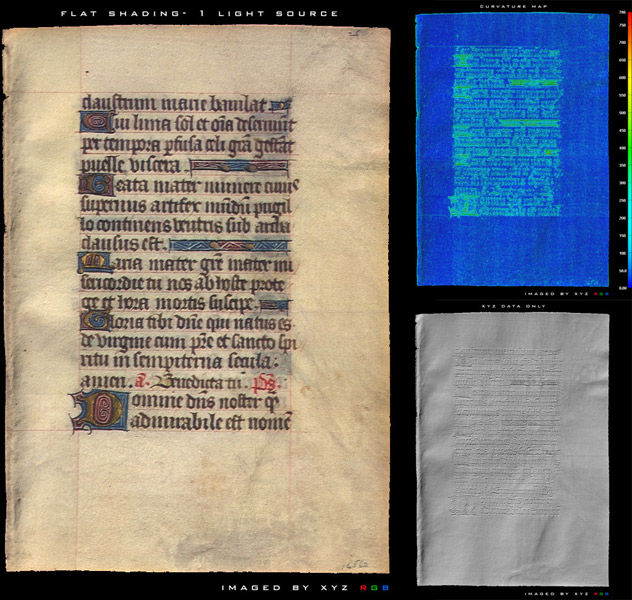 FLAT SHADING- 1 LIGHT SOURCE
claustrum marie baiulat
Cui luna sol et oīa deseruiūt
per tempora pfusa celi grā gestāt
puelle viscera.
Beata mater munere cuius
supernus artifex mūdū pugil
lo continens ventris sub archa
clausus est.
Maria mater grē mater mi
sericordie tu nos ab hoste prote
ge et hora mortis suscipe.
Gloria tibi dñe qui natus es
de virgine cum pr̄e et sancto spi
ritu in sempiterna secula:
amen. a. Benedicta tū. ps̄.
Domine dn̄s noster q̄
admirabile est nomē
IMAGED BY XYZ RGB
CURVATURE MAP
IMAGED BY XYZ RGB
XYZ DATA ONLY
IMAGED BY XYZ RGB